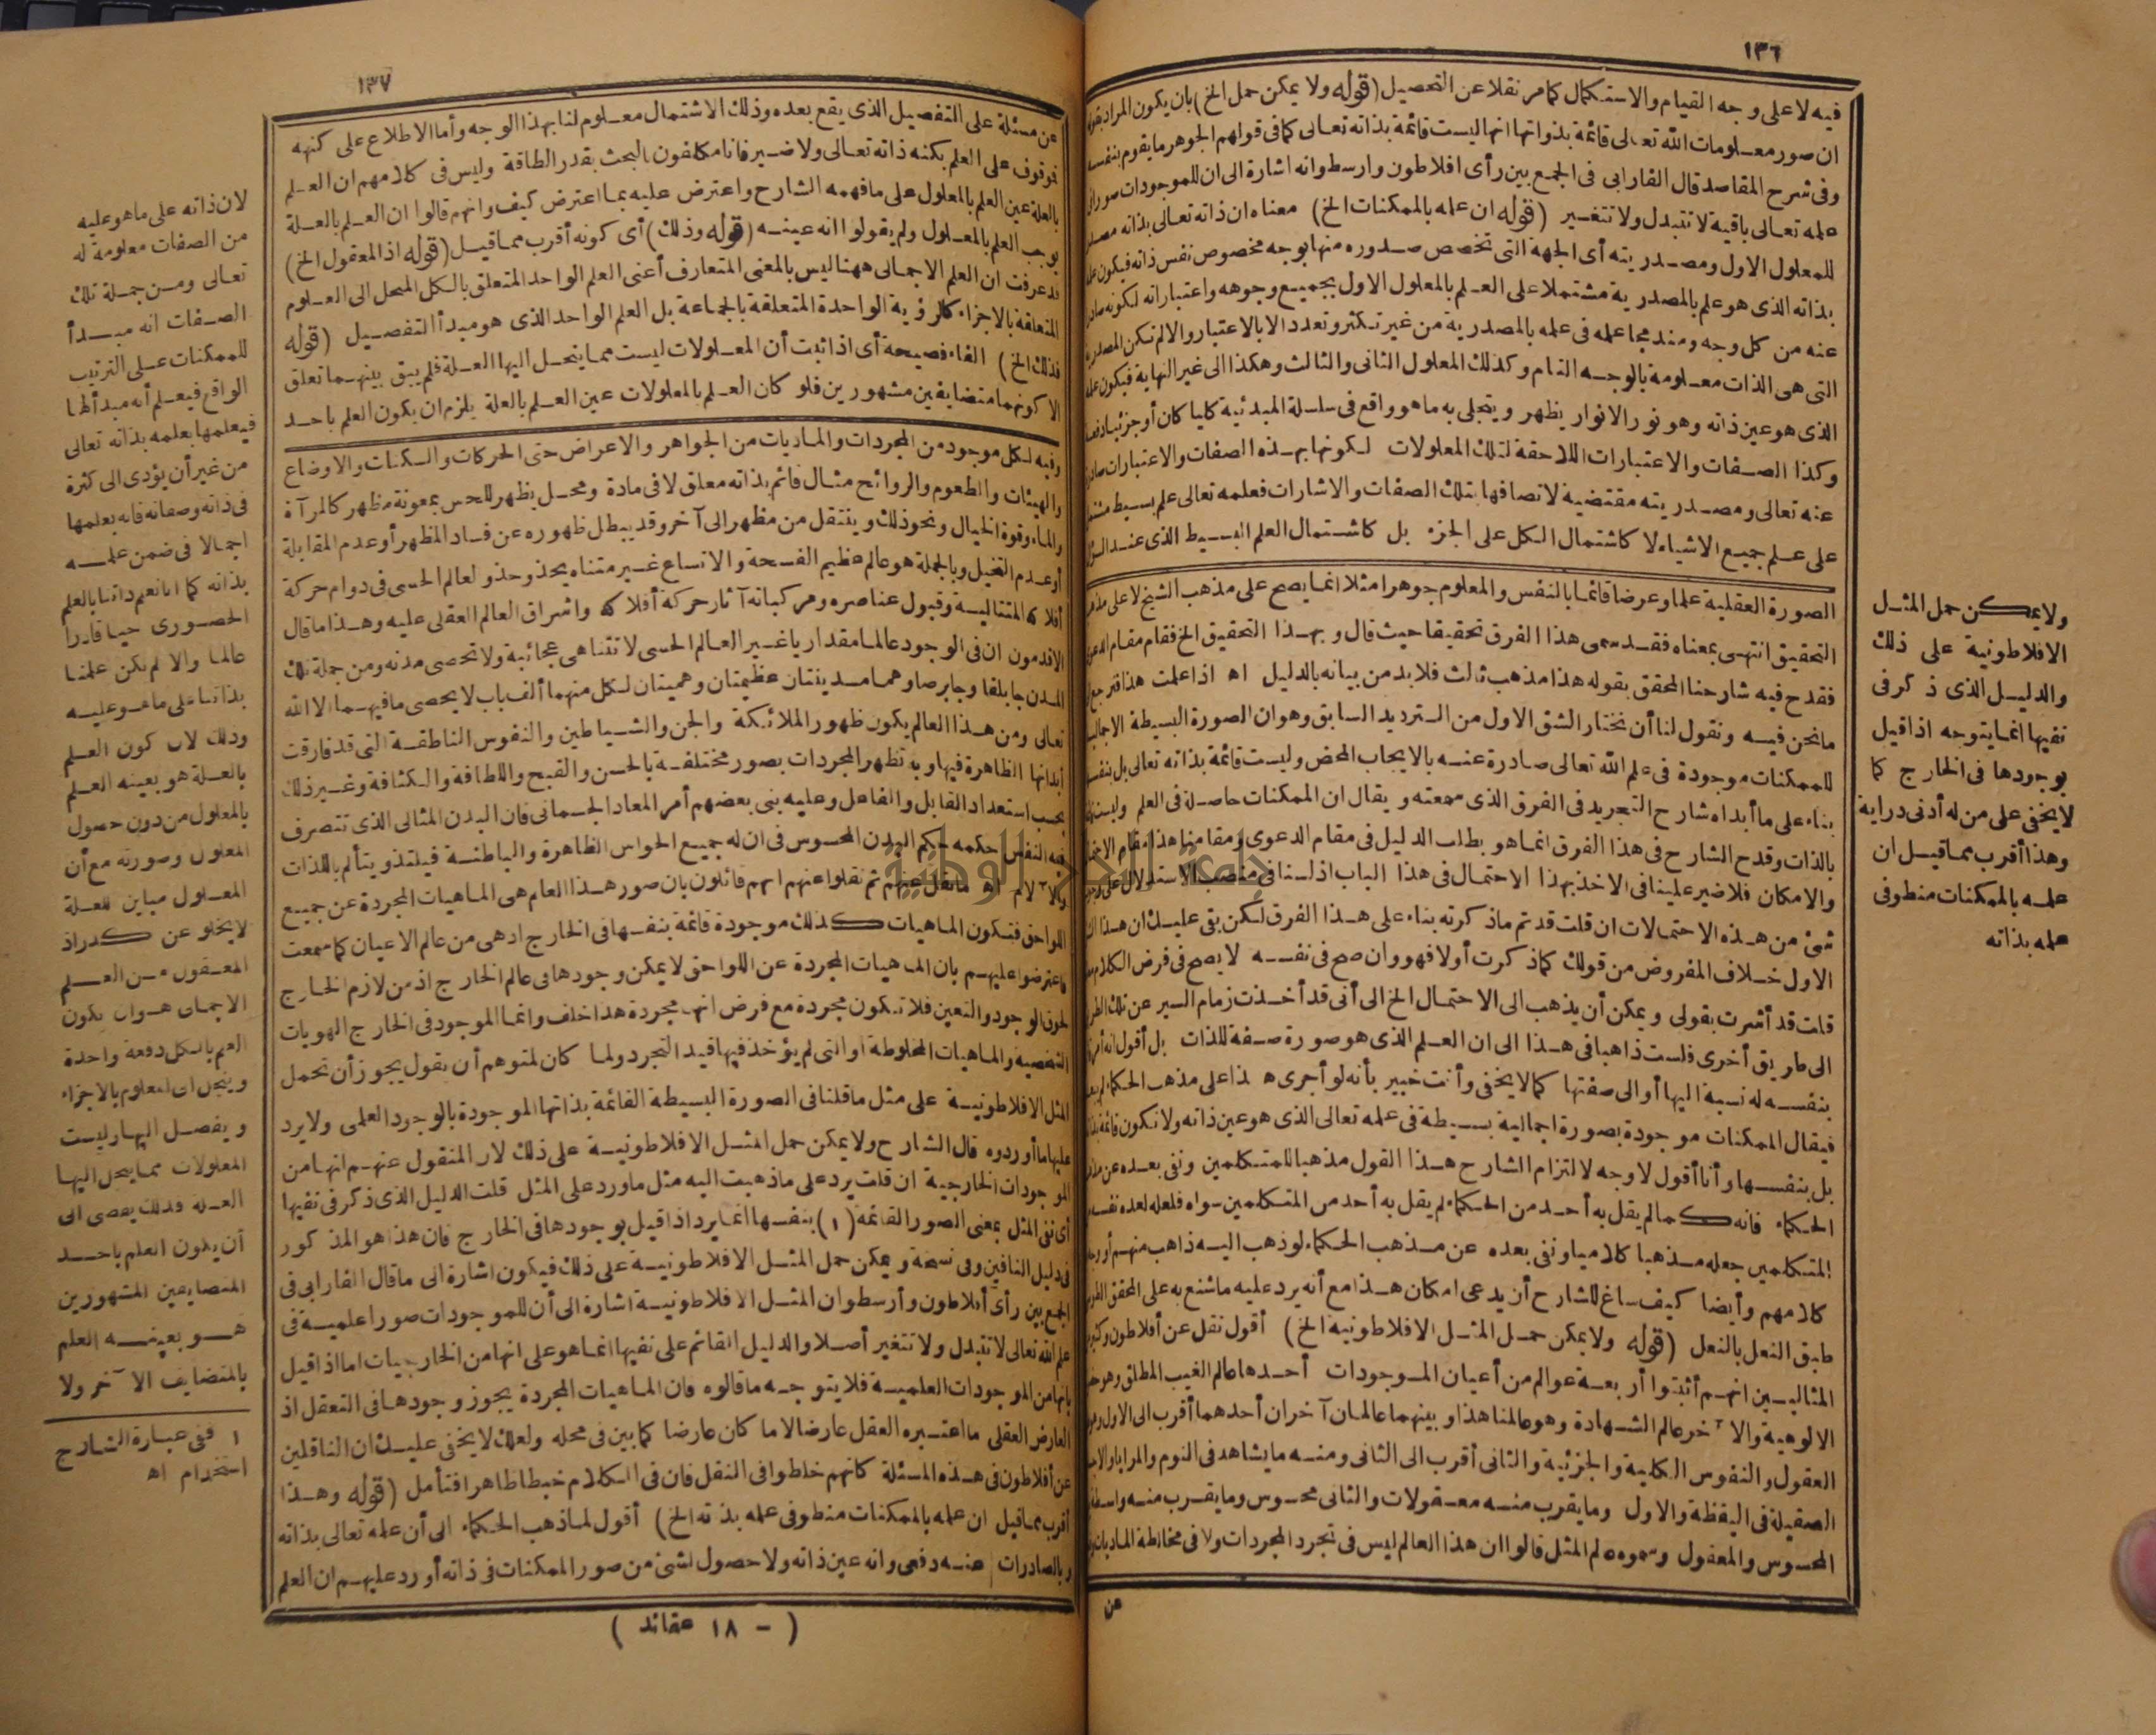 ١٣٦
فيه لا على وجه القيام والاستكمال كما مر نقلا عن التحصيل (قوله ولا يمكن حمل الخ) بان يكون المراد
ان صور معلومات الله تعالى قائمة بذواتها انها ليست قائمة بذاته تعالى كما فى قولهم الجوهر ما يقوم بنفسه
وفى شرح المقاصد قال الفارابى فى الجمع بين رأى افلاطون وارسطو انه اشارة الى ان للموجودات صورا فى
علمه تعالى باقية لا تتبدل ولا تتغير (قوله ان علمه بالممكنات الخ) معناه ان ذاته تعالى بذاته مصدر
للمعلول الاول ومصدريته أى الجهة التى تخصص صدوره منها بوجه مخصوص نفس ذاته فيكون علمه
بذاته الذى هو علم بالمصدرية مشتملا على العلم بالمعلول الاول بجميع وجوهه واعتباراته لكونه صادرا
عنه من كل وجه ومندمجا علمه فى علمه بالمصدرية من غير تكثر وتعدد الا بالاعتبار والا لم تكن المصدرية
التى هى الذات معلومة بالوجه التام وكذلك المعلول الثانى والثالث وهكذا الى غير النهاية فيكون علمه
الذى هو عين ذاته وهو نور الانوار يظهر ويتجلى به ما هو واقع فى سلسلة المبدئية كليا كان أو جزئيا
وكذا الصفات والاعتبارات اللاحقة لتلك المعلولات لكونها بهذه الصفات والاعتبارات صادرة
عنه تعالى ومصدريته مقتضية لاتصافها بتلك الصفات والاشارات فعلمه تعالى علم بسيط مشتمل
على علم جميع الاشياء لا كاشتمال الكل على الجزء بل كاشتمال العلم البسيط الذى عند السؤال
الصورة العقلية علما وعرضا قائما بالنفس والمعلوم جوهرا مثلا انما يصح على مذهب الشيخ لا على مذهب
التحقيق انتهى بمعناه فقد سمى هذا الفرق تحقيقا حيث قال وبهذا التحقيق الخ فقام مقام المدعى
فقدح فيه شارحنا المحقق بقوله هذا مذهب ثالث فلا بد من بيانه بالدليل اه اذا علمت هذا
ما نحن فيه ونقول لنا أن نختار الشق الاول من الترديد السابق وهو ان الصورة البسيطة الاجمالية
للممكنات موجودة فى علم الله تعالى صادرة عنه بالايجاب المحض وليست قائمة بذاته تعالى بل بنفسها
بناء على ما أبداه شارح التجريد فى الفرق الذى سمعته ويقال ان الممكنات حاصلة فى العلم وليست
بالذات وقدح الشارح فى هذا الفرق انما هو بطلب الدليل فى مقام الدعوى ومقامنا هذا مقام
والامكان فلا ضير علينا فى الاخذ بهذا الاحتمال فى هذا الباب اذ لسنا فى منصب الاستدلال على
شئ من هذه الاحتمالات ان قلت قد تم ماذكرته بناء على هذا الفرق لكن بقى عليك ان هذا
الاول خلاف المفروض من قولك كماذكرت أولا فهو وان صح فى نفسه لا يصح فى فرض الكلام
قلت قد أشرت بقولى ويمكن أن يذهب الى الاحتمال الخ الى أنى قد أخذت زمام السير عن تلك الطريق
الى طريق أخرى فلست ذاهبا فى هذا الى ان العلم الذى هو صورة صفة للذات بل أقول انه
بنفسه له نسبة اليها أو الى صفتها كما لا يخفى وأنت خبير بأنه لو أجرى هذا على مذهب الحكماء
فيقال الممكنات موجودة بصورة اجمالية بسيطة فى علمه تعالى الذى هو عين ذاته ولا تكون قائمة
بل بنفسها وأنا أقول لا وجه لالتزام الشارح هذا القول مذهبا للمتكلمين ونفى بعده عن
الحكماء فانه كما لم يقل به أحد من الحكماء لم يقل به أحد من المتكلمين سواه فلعله لعده نفسه
المتكلمين جعله مذهبا كلاميا ونفى بعده عن مذهب الحكماء لو ذهب اليه ذاهب منهم
كلامهم وأيضا كيف ساغ للشارح أن يدعى امكان هذا مع أنه يرد عليه ما شنع به على المحقق الطوسى
طبق النعل بالنعل (قوله ولا يمكن حمل المثل الافلاطونية الخ) أقول نقل عن أفلاطون
المثاليين انهم أثبتوا أربعة عوالم من أعيان الموجودات أحدها عالم الغيب المطلق وهو
الالوهية والآخر عالم الشهادة وهو عالمنا هذا وبينهما عالمان آخران أحدهما أقرب الى الاول وهو
العقول والنفوس الكلية والجزئية والثانى أقرب الى الثانى ومنه ما يشاهد فى النوم والمرايا
الصقيلة فى اليقظة والاول وما يقرب منه معقولات والثانى محسوس وما يقرب منه واسطة
المحسوس والمعقول وسموه عالم المثل قالوا ان هذا العالم ليس فى تجرد المجردات ولا فى مخالطة الماديات
عن
ولا يمكن حمل المثل
الافلاطونية على ذلك
والدليل الذى ذكر فى
نفيها انما يتوجه اذا قيل
بوجودها فى الخارج كما
لا يخفى على من له أدنى دراية
وهذا أقرب مما قيل ان
علمه بالممكنات منطو فى
علمه بذاته
١٣٧
عن مسئلة على التفصيل الذى يقع بعده وذلك الاشتمال معلوم لنا بهذا الوجه وأما الاطلاع على كنهه
فوقوف على العلم بكنه ذاته تعالى ولا ضير فانا مكلفون بالبحث بقدر الطاقة وليس فى كلامهم ان العلم
بالعلة عين العلم بالمعلول على ما فهمه الشارح واعترض عليه بما اعترض كيف وانهم قالوا ان العلم بالعلة
يوجب العلم بالمعلول ولم يقولوا انه عينه (قوله وذلك) أى كونه أقرب مما قيل (قوله اذ المعقول الخ)
قد عرفت ان العلم الاجمالى ههنا ليس بالمعنى المتعارف أعنى العلم الواحد المتعلق بالكل المنحل الى العلوم
المتعلقة بالاجزاء كالرؤية الواحدة المتعلقة بالجماعة بل العلم الواحد الذى هو مبدأ التفصيل (قوله
فذلك الخ) الفاء فصيحة أى اذا ثبت أن المعلولات ليست مما ينحل اليها العلة فلم يبق بينهما تعلق
الا كونهما متضايفين مشهورين فلو كان العلم بالمعلولات عين العلم بالعلة يلزم ان يكون العلم باحد
وفيه لكل موجود من المجردات والماديات من الجواهر والاعراض حتى الحركات والسكنات والاوضاع
والهيئات والطعوم والروائح مثال قائم بذاته معلق لا فى مادة ومحل يظهر للحس بمعونة مظهر كالمرآة
والماء وقوة الخيال ونحو ذلك وينتقل من مظهر الى آخر وقد يبطل ظهوره عن فساد المظهر أو عدم المقابلة
أو عدم التخيل وبالجملة هو عالم عظيم الفسحة والاتساع غير متناه يحذو حذو لعالم الحسى فى دوام حركة
أفلاكه المتتالية وقبول عناصره ومركباته آثار حركة أفلاكه واشراق العالم العقلى عليه وهذا ما قال
الاقدمون ان فى الوجود عالما مقداريا غير العالم الحسى لا تتناهى عجائبه ولا تحصى مدنه ومن جملة تلك
المدن جابلقا وجابرصا وهما مدينتان عظيمتان وهميتان لكل منهما ألف باب لا يحصى ما فيهما الا الله
تعالى ومن هذا العالم يكون ظهور الملائكة والجن والشياطين والنفوس الناطقة التى قد فارقت
أبدانها الظاهرة فيها وبه تظهر المجردات بصور مختلفة بالحسن والقبح واللطافة والكثافة وغير ذلك
بحسب استعداد القابل والفاعل وعليه بنى بعضهم أمر المعاد الجسمانى فان البدن المثالى الذى تتصرف
فيه النفس حكمه حكم البدن المحسوس فى ان له جميع الحواس الظاهرة والباطنة فيلتذ ويتألم باللذات
والآلام اه ما نقل عنهم ثم نقلوا عنهم انهم قائلون بان صور هذا العام هى الماهيات المجردة عن جميع
اللواحق فتكون الماهيات كذلك موجودة قائمة بنفسها فى الخارج اذ هى من عالم الاعيان كما سمعت
فاعترضوا عليهم بان الماهيات المجردة عن اللواحق لا يمكن وجودها فى عالم الخارج اذ من لازم الخارج
لحوق الوجود والتعين فلا تكون مجردة مع فرض انها مجردة هذا خلف وانما الموجود فى الخارج الهويات
الشخصية والماهيات المخلوطة أو التى لم يؤخذ فيها قيد التجرد ولما كان لمتوهم أن يقول يجوز أن تحمل
المثل الافلاطونية على مثل ما قلنا فى الصورة البسيطة القائمة بذاتها الموجودة بالوجود العلمى ولا يرد
عليها ما أوردوه قال الشارح ولا يمكن حمل المثل الافلاطونية على ذلك لان المنقول عنهم انها من
الموجودات الخارجية ان قلت يرد على ما ذهبت اليه مثل ما ورد على المثل قلت الدليل الذى ذكر فى نفيها
أى نفى المثل بمعنى الصور القائمة (١) بنفسها انما يرد اذا قيل بوجودها فى الخارج فان هذا هو المذكور
فى دليل النافين وفى نسخة ويمكن حمل المثل الافلاطونية على ذلك فيكون اشارة الى ما قال الفارابى فى
الجمع بين رأى أفلاطون وأرسطو ان المثل الافلاطونية اشارة الى أن للموجودات صورا علمية فى
علم الله تعالى لا تتبدل ولا تتغير أصلا والدليل القائم على نفيها انما هو على انها من الخارجيات اما اذا قيل
بانها من الموجودات العلمية فلا يتوجه ما قالوه فان الماهيات المجردة يجوز وجودها فى التعقل اذ
العارض العقلى ما اعتبره العقل عارضا لا ما كان عارضا كما بين فى محله ولعلك لا يخفى عليك ان الناقلين
عن أفلاطون فى هذه المسئلة كانهم خلطوا فى النقل فان فى الكلام خبطا ظاهرا فتأمل (قوله وهذا
أقرب مما قيل ان علمه بالممكنات منطو فى علمه بذاته الخ) أقول لما ذهب الحكماء الى أن علمه تعالى بذاته
وبالصادرات عنه دفعى وانه عين ذاته ولا حصول لشئ من صور الممكنات فى ذاته أورد عليهم ان العلم
(- ١٨ عقائد)
لان ذاته على ما هو عليه
من الصفات معلومة له
تعالى ومن جملة تلك
الصفات انه مبدأ
للممكنات على الترتيب
الواقع فيعلم أنه مبدأ لها
فيعلمها بعلمه بذاته تعالى
من غير أن يؤدى الى كثرة
فى ذاته وصفاته فانه يعلمها
اجمالا فى ضمن علمه
بذاته كما انا نعم ذاتنا بالعلم
الحضورى حيا قادرا
عالما والا لم يكن علمنا
بذاتنا على ما هو عليه
وذلك لان كون العلم
بالعلة هو بعينه العلم
بالمعلول من دون حصول
المعلول وصورته مع أن
المعلول مباين للعلة
لا يخلو عن كدر اذ
المعقول من العلم
الاجمالى هو ان يكون
العلم بالكل دفعة واحدة
وينحل الى المعلوم بالاجزاء
ويفصل اليها وليست
المعلولات مما ينحل اليها
العلة فذلك يفضى الى
أن يكون العلم باحد
المتضايفين المشهورين
هو بعينه العلم
بالمتضايف الآخر ولا
١ ففى عبارة الشارح
استخدام اه
جامعة النجاح الوطنية